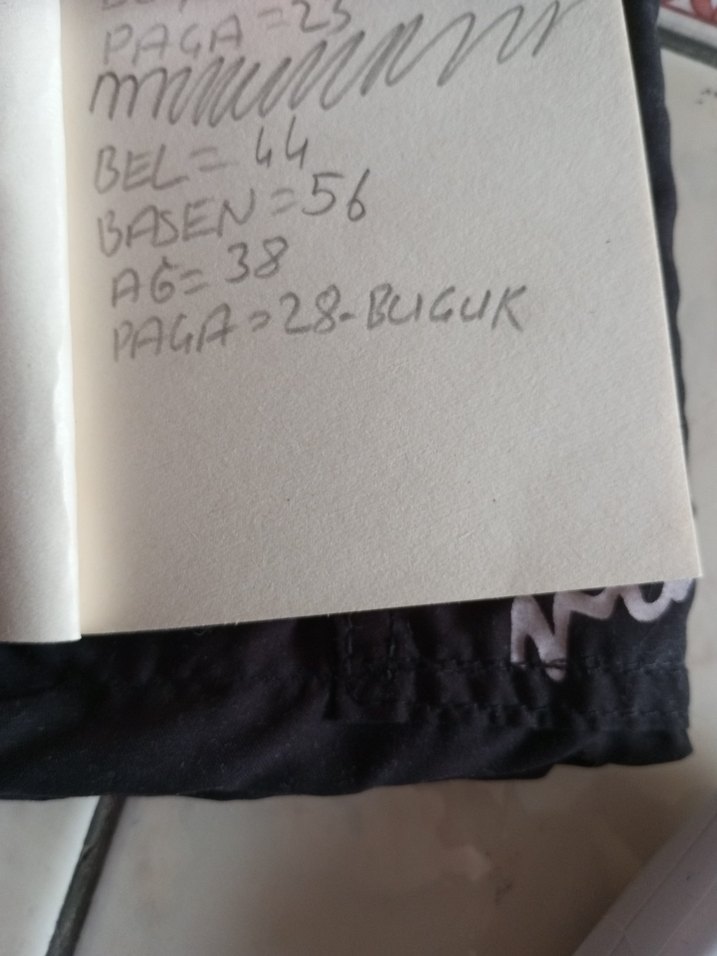 PAÇA = 25
BEL = 44
BASEN = 56
AĞ = 38
PAÇA = 28 - BUGUK